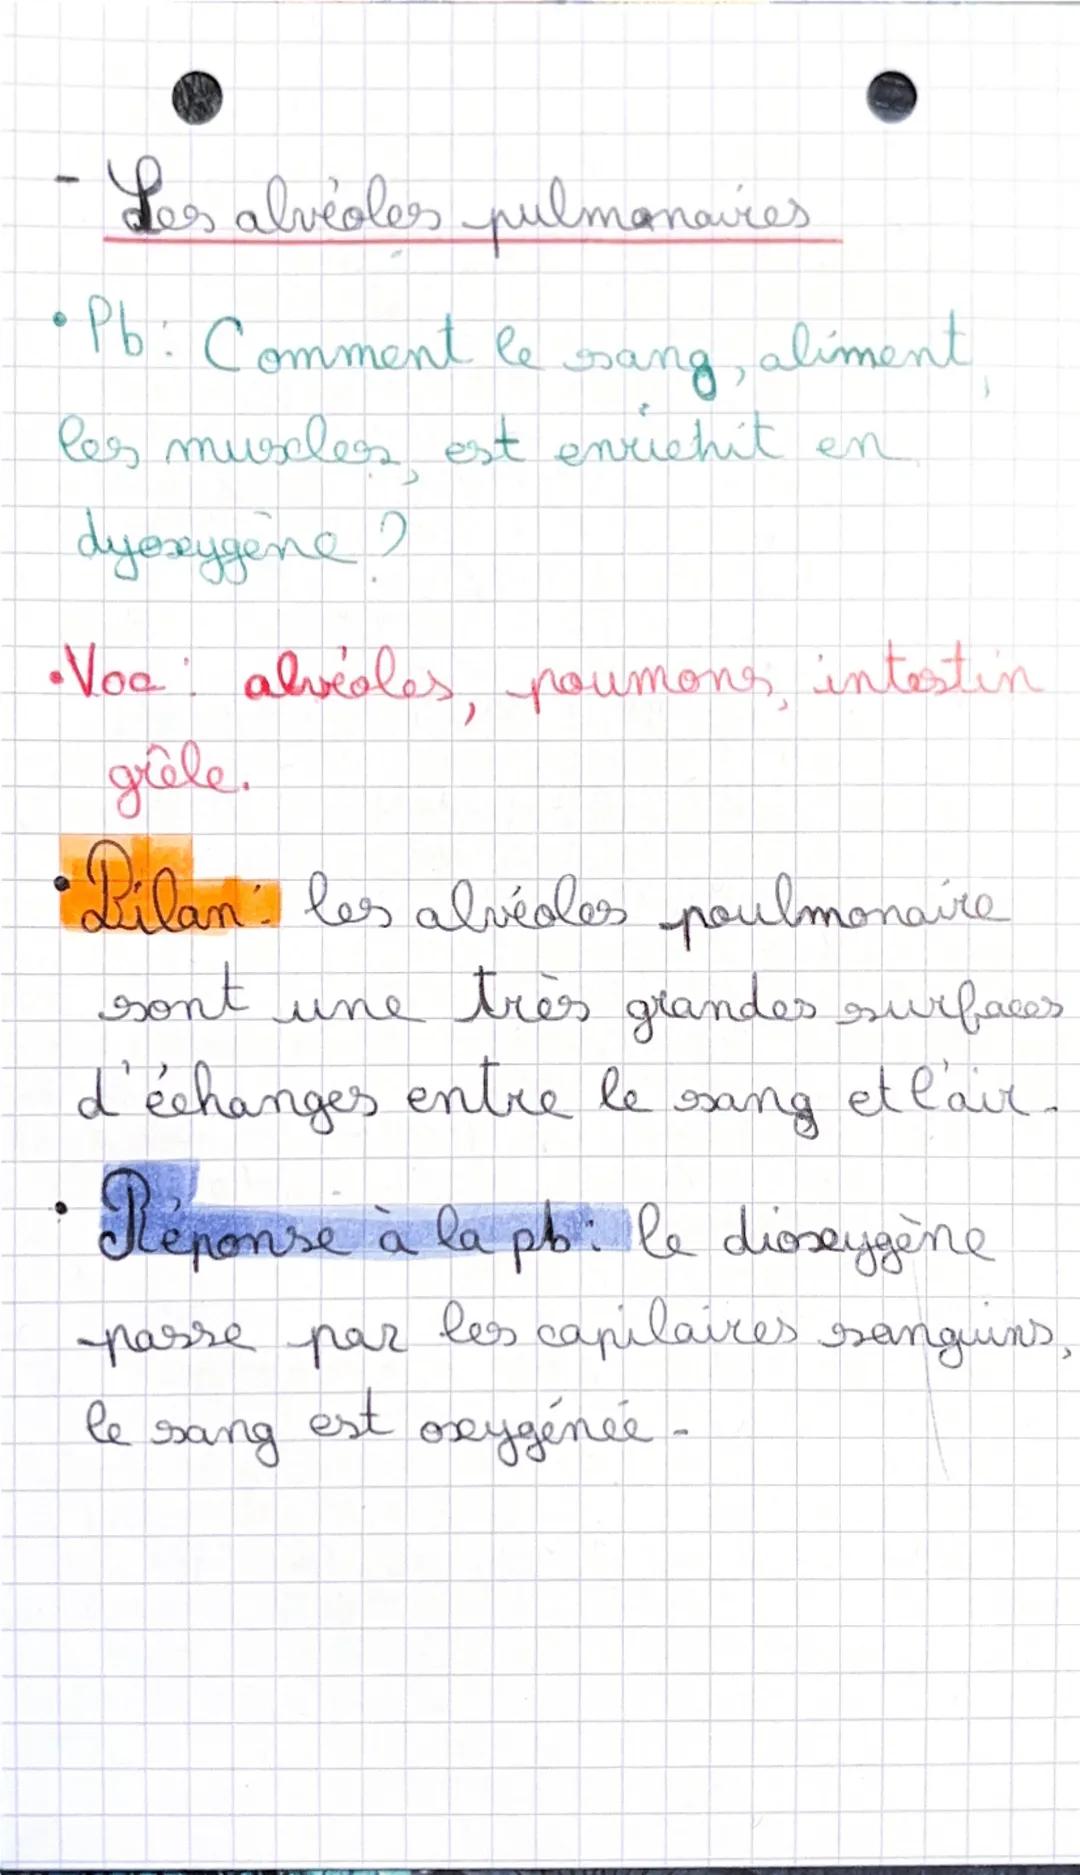 - Les alvéoles pulmonaires
• Pb : Comment le sang, aliment,
les muscles, est enrichit en
dyoxygène ?
• Voc : alvéoles, poumons, intestin
grêle.
• Bilan : les alvéoles poulmonaire
sont une très grandes surfaces
d'échanges entre le sang et l'air.
• Réponse à la pb : le dioxygène
passe par les capilaires sanguins,
le sang est oxygénée.